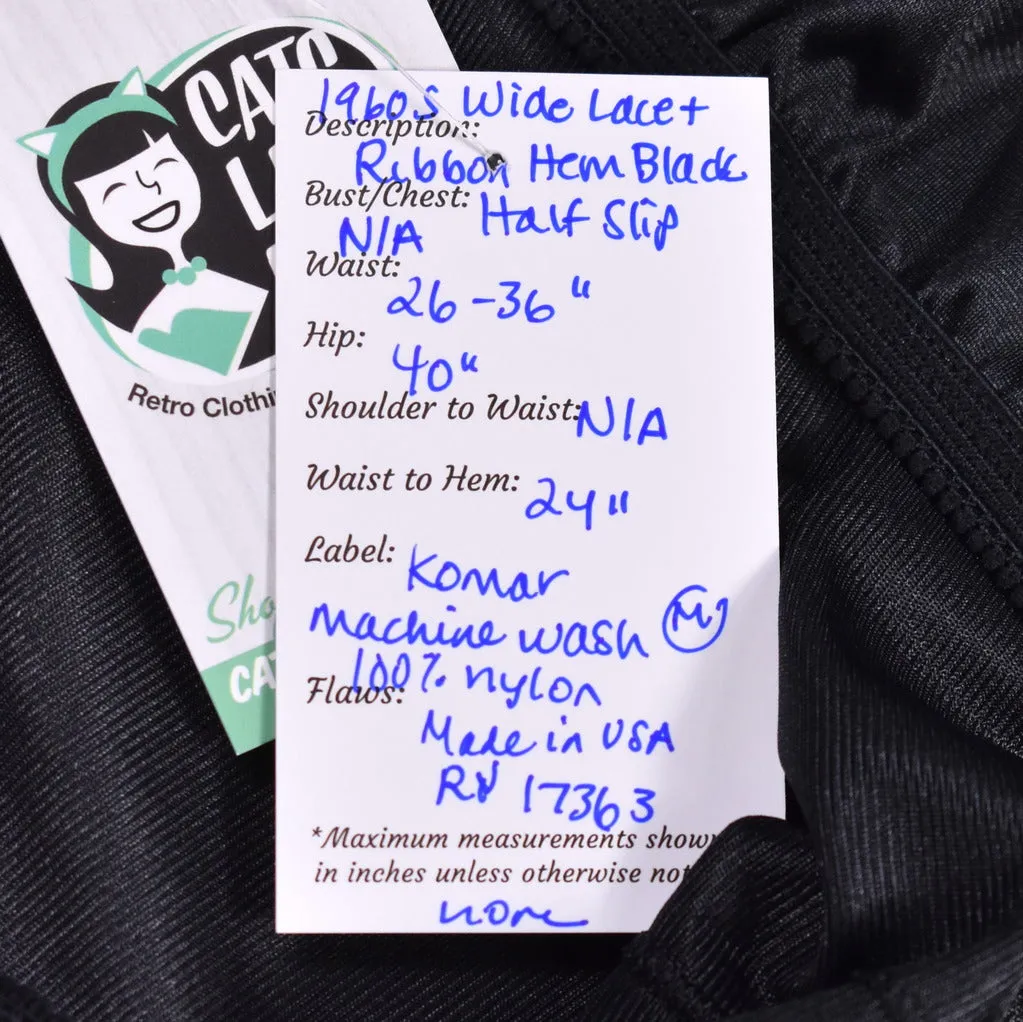 CATS
L
Retro Clothi
Sho
CAT
1960s Wide Lace +
Description:
Ribbon Hem Black
Bust/Chest: Half Slip
N/A
Waist:
26-36"
Hip:
40"
Shoulder to Waist: N/A
Waist to Hem: 24"
Label: Komar
machine wash M
100% nylon
Flaws:
Made in USA
RN 17363
*Maximum measurements show
in inches unless otherwise not
none